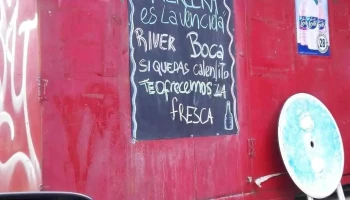 es La vencida
RiveR Boca
Si quedas calentito
Te ofrecemos LA
fResca
28